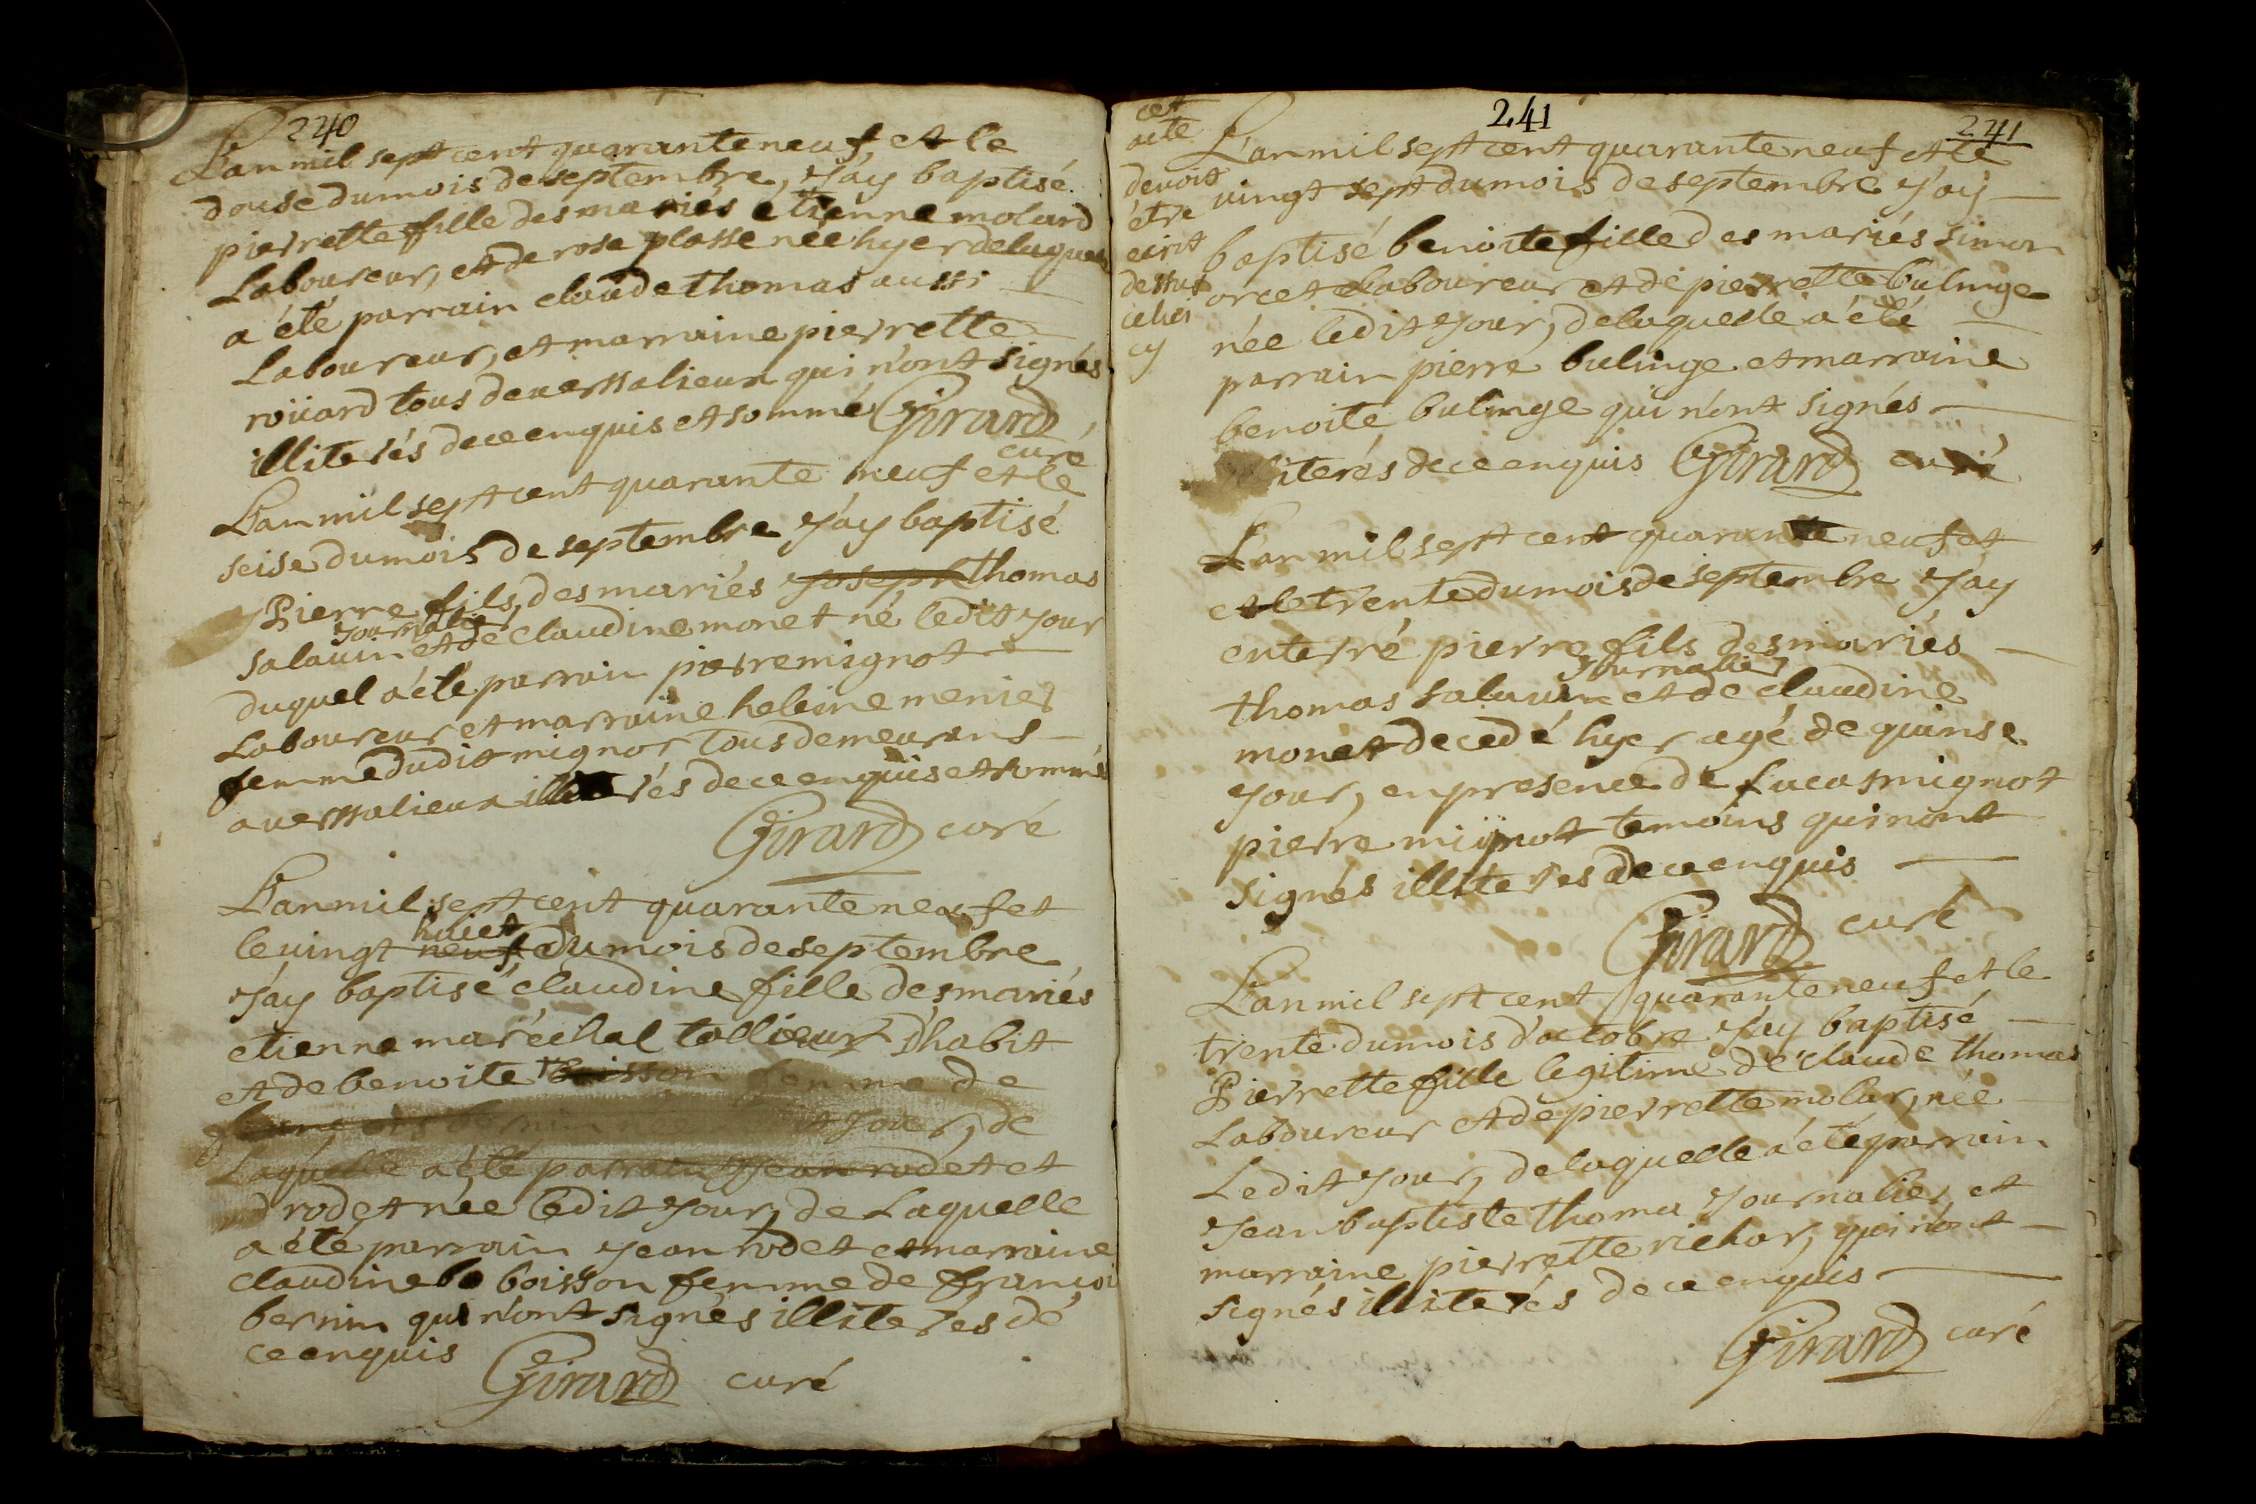 240
L'an mil sept cent quarante neuf et le
douse du mois de septembre, J'ay baptisé
pierrette fille des mariés etienne molard
Laboureur, et de rose plasse née hyer de laquelle
a été parrain claude thomas aussi
Laboureur, et marraine pierrette
roüard tous de versalieux qui n'ont signés
illiterés de ce enquis et sommé Girard
curé
L'an mil sept cent quarante neuf et le
seise du mois de septembre J'ay baptisé
Pierre fils, des mariés Joseph thomas
Journalier
salauin et de claudine monet né ledit Jour
duquel a été parrain pierre mignot
Laboureur et marraine heleine menier
femme dudit mignot tous demeurans
a versalieux illiterés de ce enquis et sommés
Girard curé
L'an mil sept cent quarante neuf et
huict
le vingt neuf du mois de septembre
J'ay baptisé claudine fille des mariés
etienne maréchal tallieur d'habit
et de benoite boisson femme de
bernin née Jour, de
Laquelle a été parrain Jean rodet et
rodet née ledit Jour, de Laquelle
a été parrain Jean rodet et marraine
claudine bo boisson femme de françoi
bernin qui n'ont signés illiterés de
ce enquis
Girard curé
241
241
cet
acte
devoit
être
ecrit
dessus
celui
cy
L'an mil sept cent quarante neuf et le
vingt sept du mois de septembre J'ay
baptisé benoite fille des mariés simon
orcet Laboureur et de pierrette bulinge
née ledit Jour, de laquelle a été
parrain pierre bulinge et marraine
benoite bulinge qui n'ont signés
illiterés de ce enquis Girard curé
L'an mil sept cent quarante neuf et
et le trente du mois de septembre J'ay
enterré pierre fils des mariés
Journalier
thomas salauin et de claudine
monet decedé hyer agé de quinse
Jour, en presence de Lucas mignot
pierre mignot temoins qui n'ont
signés illiterés de ce enquis
Girard curé
L'an mil sept cent quarante neuf et le
trente du mois d'octobre J'ay baptisé
Pierrette fille legitime de claude thomas
Laboureur et de pierrette molar, née
Ledit Jour, de laquelle a été parrain
Jean baptiste thoma Journalier et
marraine pierrette richar, qui n'ont
signés illiterés de ce enquis
Girard curé